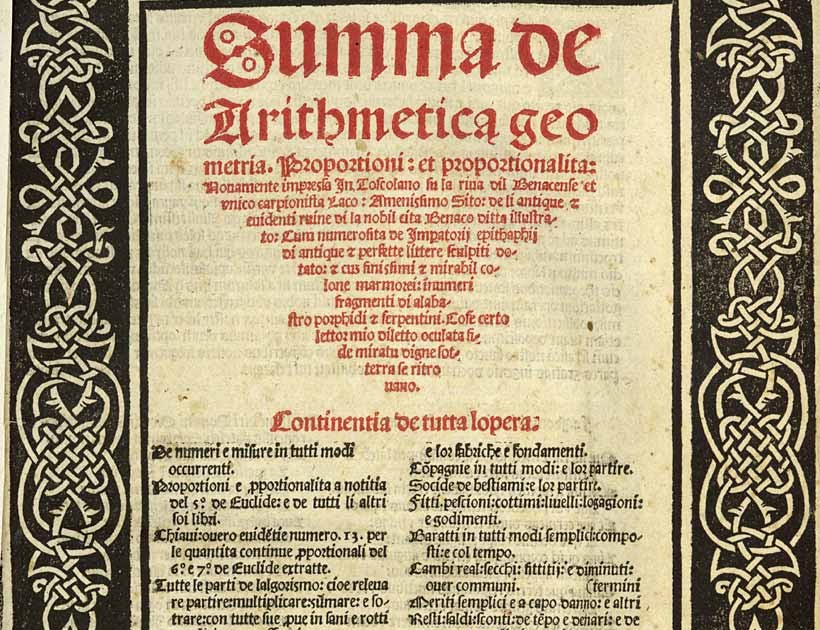 Summa de
Arithmetica geo
metria. Proportioni: et proportionalita:
Nouamente impressa In Toscolano su la riua dil Benacense et
vnico carpionista Laco: Amenissimo Sito: de li antique &
euidenti ruine di la nobil cita Benaco ditta illustra-
to: Cum numerosita de Impatorij epithaphij
di antique & perfette littere sculpiti do-
tato: & cus finissimi & mirabil co-
lone marmorei: inumeri
fragmenti di alaba-
stro porphidi & serpentini. Cose certo
lettor mio diletto oculata fi-
de miratu digne sot-
terra se ritro
uano.
Continentia de tutta lopera:
De numeri e misure in tutti modi
occurrenti.
Proportioni e ꝓportionalita a notitia
del 5º de Euclide: e de tutti li altri
soi libri.
Chiaui: ouero euidẽtie numero. 13. per
le quantita continue ꝓportionali del
6º e 7º de Euclide extratte.
Tutte le parti de lalgorismo: cioe releua
re partire: multiplicare: sũmare: e so-
trare: con tutte sue ꝓue in sani e rotti
e lor fabriche e fondamenti.
Cõpagnie in tutti modi: e lor partire.
Socide de bestiami: e lor partire.
Fitti: pescioni: cottimi: liuelli: logagioni:
e godimenti.
Baratti in tutti modi semplici: compo-
sti: e col tempo.
Cambi real: secchi: fittitij: e diminuti:
ouer communi. (termini
Meriti semplici e a capo danno: e altri
Resti: saldi: sconti: de tẽpo e denari: e de